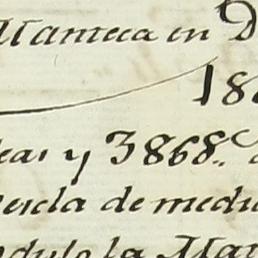 Manteca en D
18
eas y 3868
escla de medi
ndulo la Man